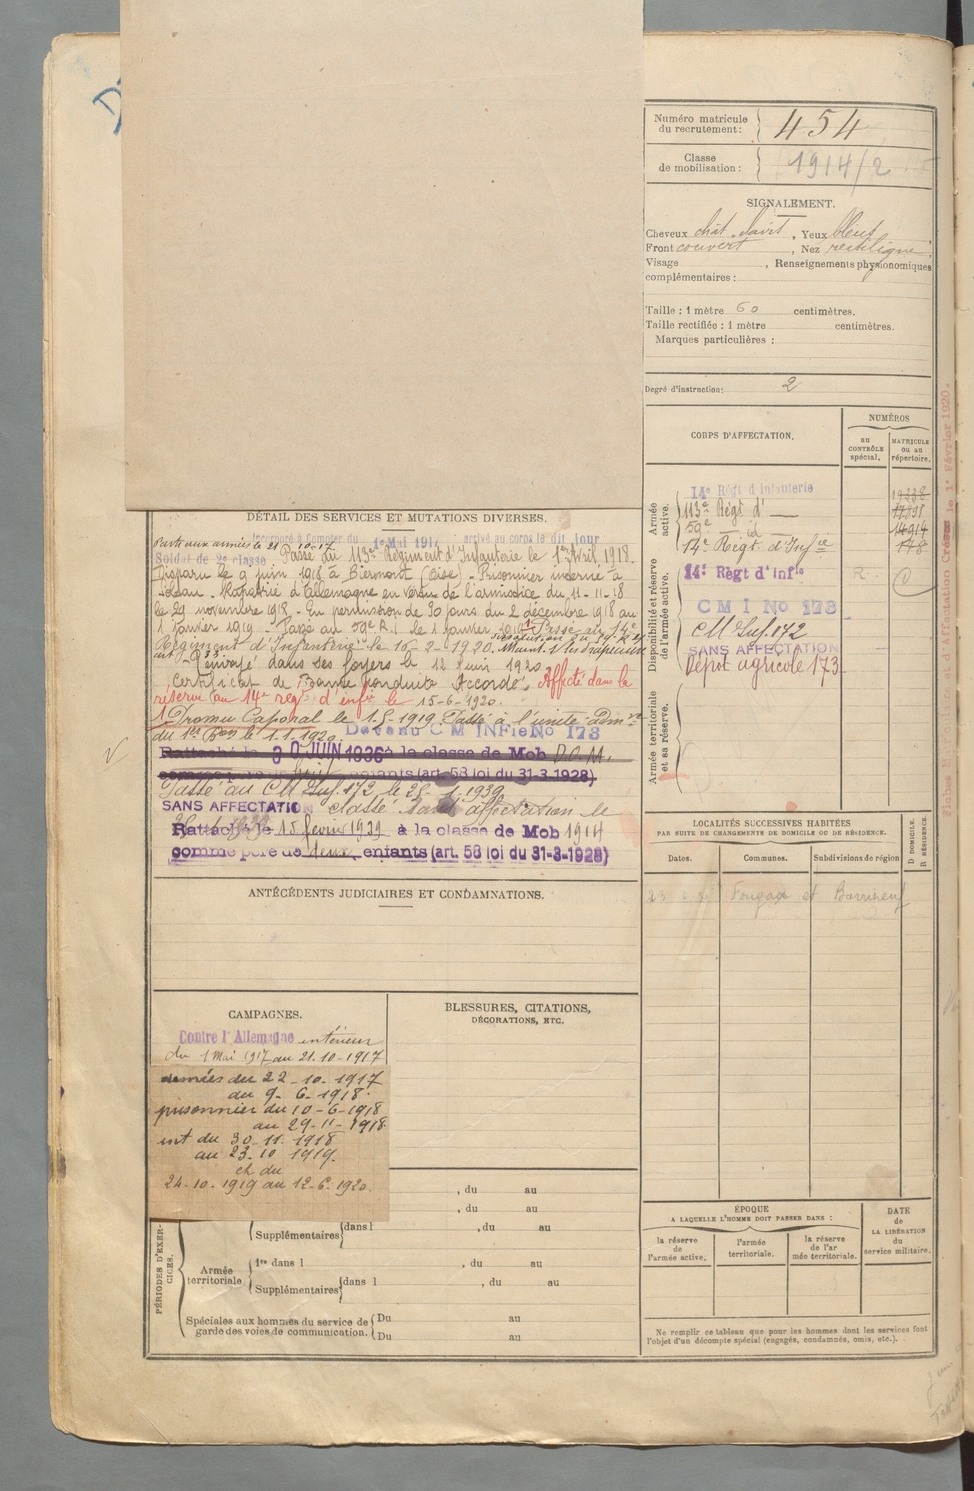 Numéro matricule du recrutement : 454
Classe de mobilisation : 1914/2
SIGNALEMENT.
Cheveux chât. clairs, Yeux bleus
Front couvert, Nez rectiligne,
Visage , Renseignements physionomiques
complémentaires :
Taille : 1 mètre 60 centimètres.
Taille rectifiée : 1 mètre centimètres.
Marques particulières :
Degré d'instruction : 2
CORPS D'AFFECTATION.
NUMÉROS
au CONTRÔLE spécial.
MATRICULE ou au répertoire.
Armée active.
14e Régt d'Infanterie
113e Régt d' —
59e — id
14e Régt d'Infie
Disponibilité et réserve de l'armée active.
14e Régt d'Infie
C M I No 173
CM Inf. 172
SANS AFFECTATION
Dépôt agricole 173
Armée territoriale et sa réserve.
DÉTAIL DES SERVICES ET MUTATIONS DIVERSES.
Incorporé à compter du 1er Mai 1917 arrivé au corps le dit jour
Parti aux armées le 21-10-17
Soldat de 2e classe Passé au 113e Régiment d'Infanterie le 1er Avril 1918.
Disparu le 9 juin 1918 à Biermont (Oise) – Prisonnier interné à
– Rapatrié d'Allemagne en vertu de l'armistice du 11-11-18
le 29 novembre 1918 – En permission de 30 jours du 2 décembre 1918 au
1 Janvier 1919 – Passé au 59e R.I le 1 Janvier 1919 Passé au 14e
Régiment d'Infanterie le 16-2-1920. Maint. s/ les drapeaux
– Renvoyé dans ses foyers le 12 Juin 1920
Certificat de Bonne Conduite Accordé. Affecté dans la
réserve au 14e régt d'infie le 15-6-1920.
Promu Caporal le 1-5-1919 Passé à l'unité admve
du 1er Bon le 1.1.1920. Devenu C M INFie No 173
Rattaché le 30 JUIN 1936 à la classe de Mob D.O.M.
enfants (art. 58 loi du 31-3-1928)
Passé au CM Inf. 172 le 25-1-1939
SANS AFFECTATION Classé sans affectation le
Rattaché le 15 février 1939 à la classe de Mob 1914
comme père de deux enfants (art. 58 loi du 31-3-1928)
Fiches et d'Affectation Créées le 1er Février 1920.
LOCALITÉS SUCCESSIVES HABITÉES
PAR SUITE DE CHANGEMENTS DE DOMICILE OU DE RÉSIDENCE.
Dates.
Communes.
Subdivisions de région
D DOMICILE.
R RÉSIDENCE.
Fougax et Barrineuf
ANTÉCÉDENTS JUDICIAIRES ET CONDAMNATIONS.
CAMPAGNES.
Contre l'Allemagne intérieur
du 1 Mai 1917 au 21-10-1917
armées du 22-10-1917
au 9-6-1918.
prisonnier du 10-6-1918
au 29-11-1918
int du 30-11-1918
au 23-10 1919.
du
24-10-1919 au 12-6-1920.
BLESSURES, CITATIONS,
DÉCORATIONS, ETC.
, du au
, du au
PÉRIODES D'EXERCICES.
Supplémentaires dans l , du au
Armée territoriale
1re dans l , du au
Supplémentaires dans l , du au
Spéciales aux hommes du service de garde des voies de communication.
Du au
Du au
ÉPOQUE
A LAQUELLE L'HOMME DOIT PASSER DANS :
la réserve de l'armée active.
l'armée territoriale.
la réserve de l'ar mée territoriale.
DATE de LA LIBÉRATION du service militaire.
Ne remplir ce tableau que pour les hommes dont les services font
l'objet d'un décompte spécial (engagés, condamnés, omis, etc.).